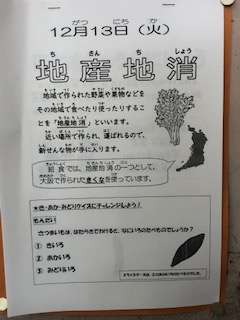 12月13日（火）
地産地消
地域で作られた野菜や果物などを
その地域で食べたり使ったりするこ
とを「地産地消」といいます。
近い場所で作られ、運ばれるので、
新せんな物が手に入ります。
給食では、地産地消の一つとして、
大阪で作られたきくなを使っています。
★き・あか・みどりクイズにチャレンジしよう！
もんだい
さつまいもは、はたらきでわけると、なにいろのたべものでしょうか？
① きいろ
② あかいろ
③ みどりいろ